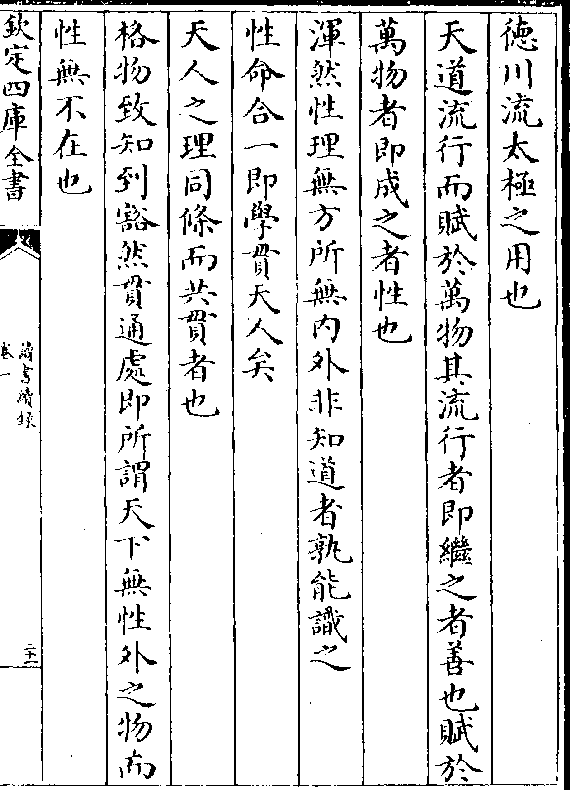 徳川流太極之用也
天道流行而賦於萬物其流行者即繼之者善也賦於
萬物者即成之者性也
渾然性理無方所無内外非知道者孰能識之
性命合一即學貫天人矣
天人之理同條而共貫者也
格物致知到豁然貫通處即所謂天下無性外之物而
性無不在也
欽定四庫全書
讀書續録
卷一
二十一